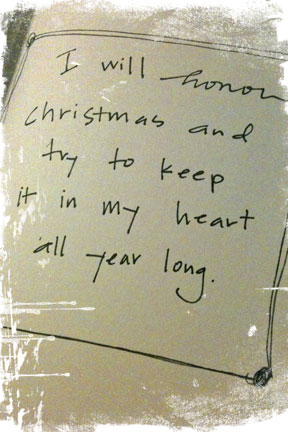 I will honor
christmas and
try to keep
it in my heart
all year long.